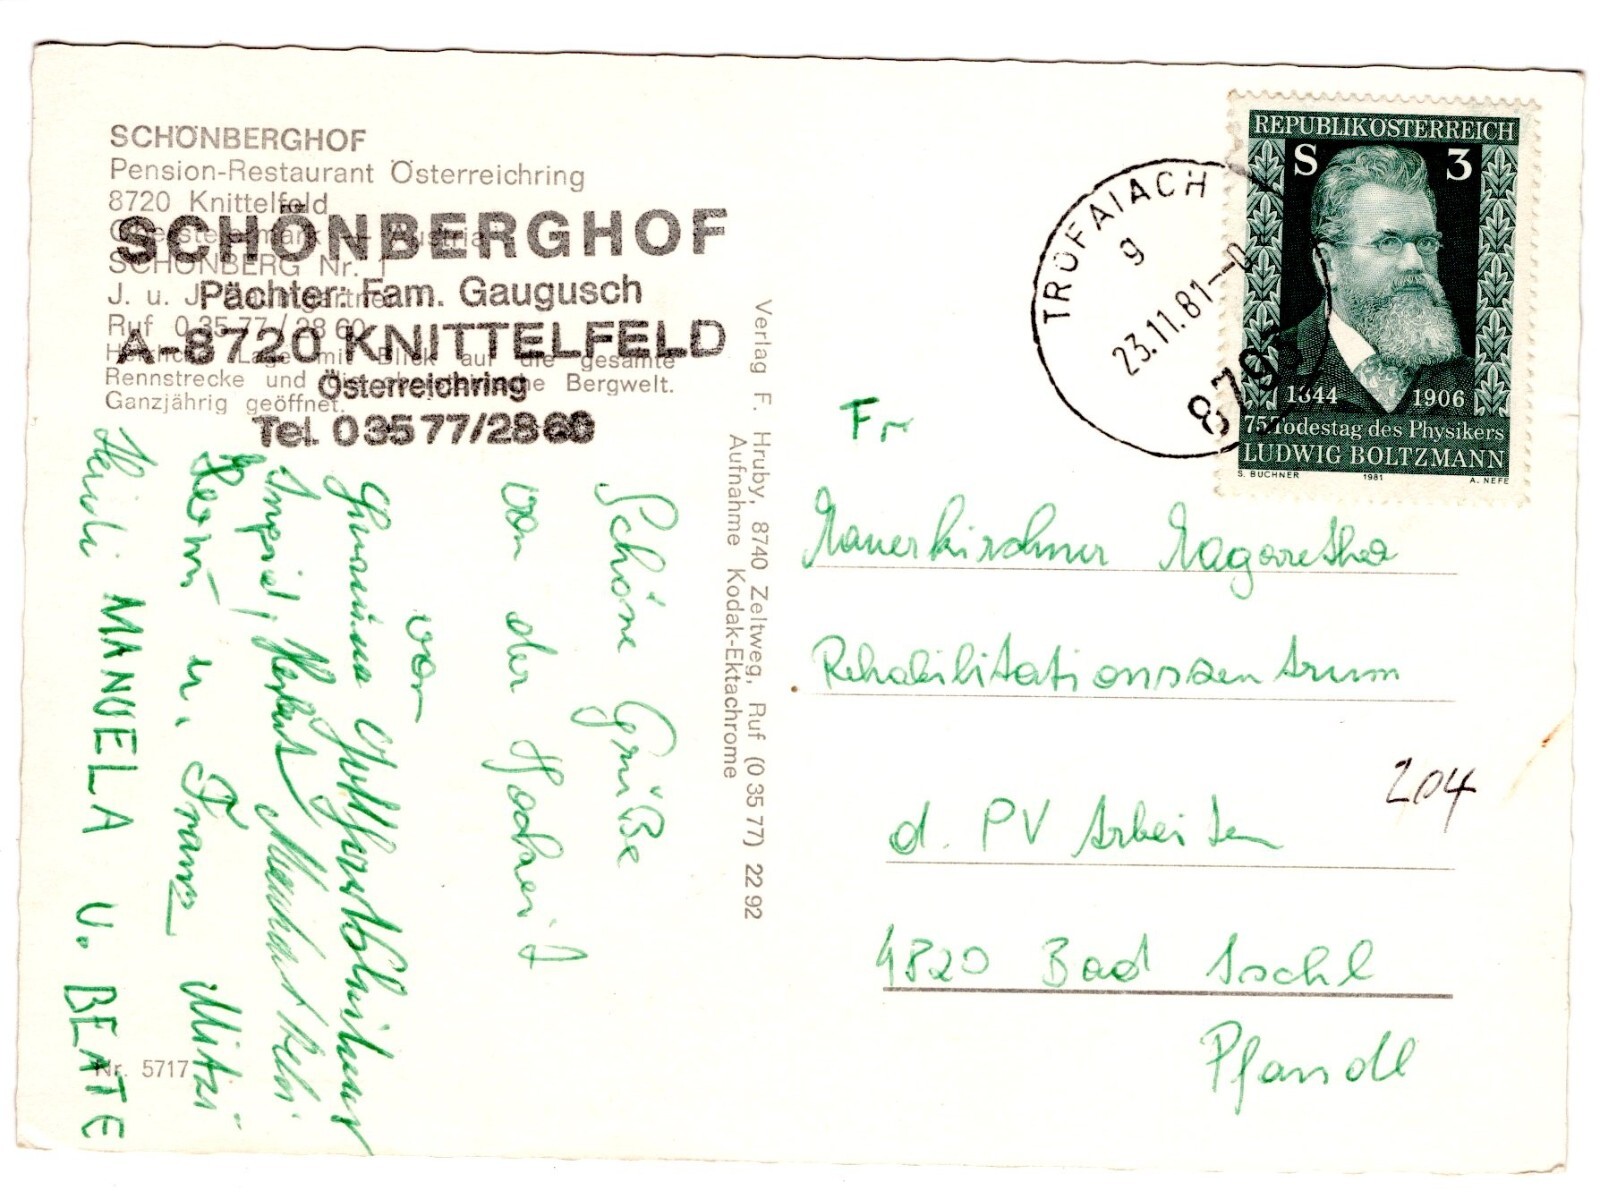 SCHÖNBERGHOF
Pension-Restaurant Österreichring
8720 Knittelfeld
SCHÖNBERG Nr. 1
J. u. J.
Ruf 0 35 77 / 28 60
Herrliche Lage mit Blick auf die gesamte
Rennstrecke und die Bergwelt.
Ganzjährig geöffnet.
SCHÖNBERGHOF
Pächter: Fam. Gaugusch
A-8720 KNITTELFELD
Österreichring
Tel. 0 35 77/28 60
Schöne Grüße
von der Hochzeit
von
Ingrid, Herbert
u. Franz Mitzi
Heidi MANUELA U. BEATE
Nr. 5717
Verlag F. Hruby, 8740 Zeltweg, Ruf (0 35 77) 22 92
Aufnahme Kodak-Ektachrome
TROFAIACH
g
23.11.81
8793
REPUBLIK ÖSTERREICH
S 3
1844 1906
75. Todestag des Physikers
LUDWIG BOLTZMANN
S. BUCHNER 1981 A. NEFE
Fr
Mauerkirchner Magaretha
Rehabilitationszentrum
204
d. PV Arbeiter
4820 Bad Ischl
Pfandl